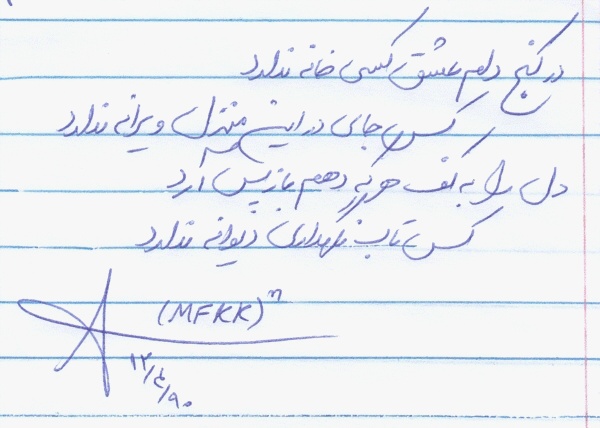 در کنج دلم عشق کسی خانه ندارد
کس جای در این منزل ویرانه ندارد
دل را به کف هر که دهم باز پس آرد
کس تاب نگهداری دیوانه ندارد
(MFKK)ⁿ
۱۲/۴/۹۰